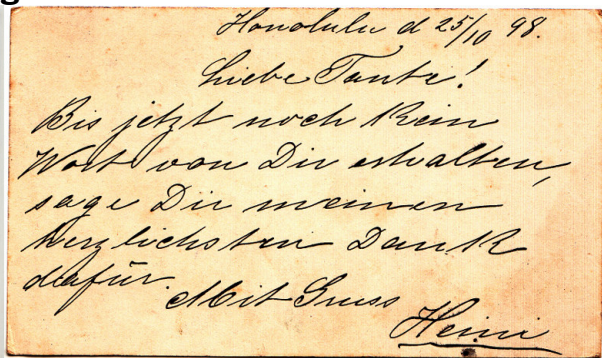 Honolulu d 25/10 98.
Liebe Tante!
Bis jetzt noch kein
Wort von Dir erhalten,
sage Dir meinen
herzlichsten Dank
dafür.
Mit Gruss
Heini